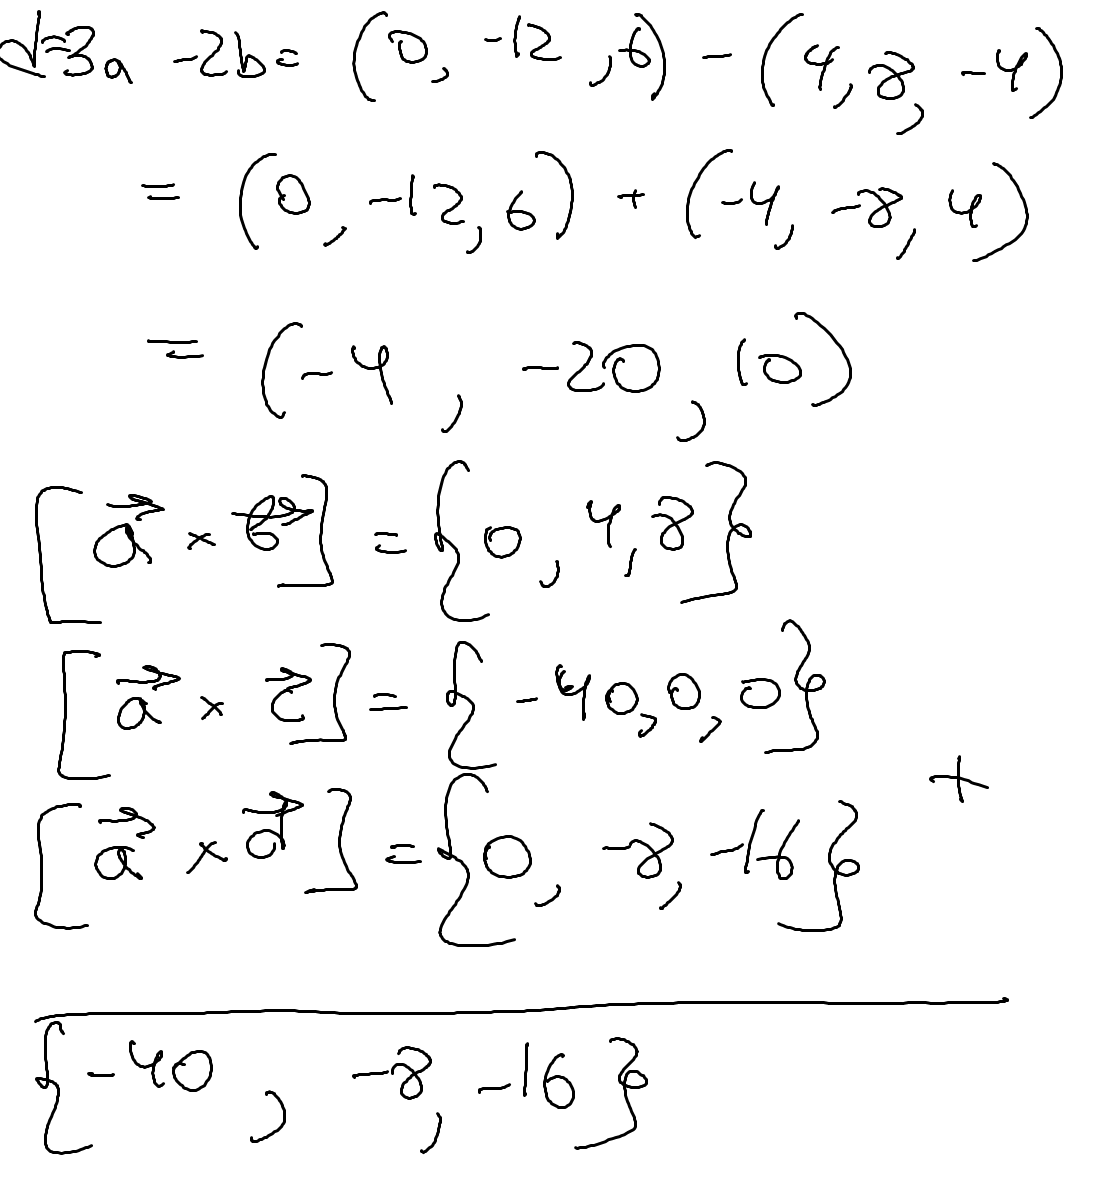 d=3a -2b= (0, -12, 6) - (4, 8, -4)
= (0, -12, 6) + (-4, -8, 4)
= (-4, -20, 10)
[a⃗ × b⃗] = {0, 4, 8}
[a⃗ × c⃗] = {-40, 0, 0}
+
[a⃗ × d⃗] = {0, -8, -16}
{-40, -8, -16}